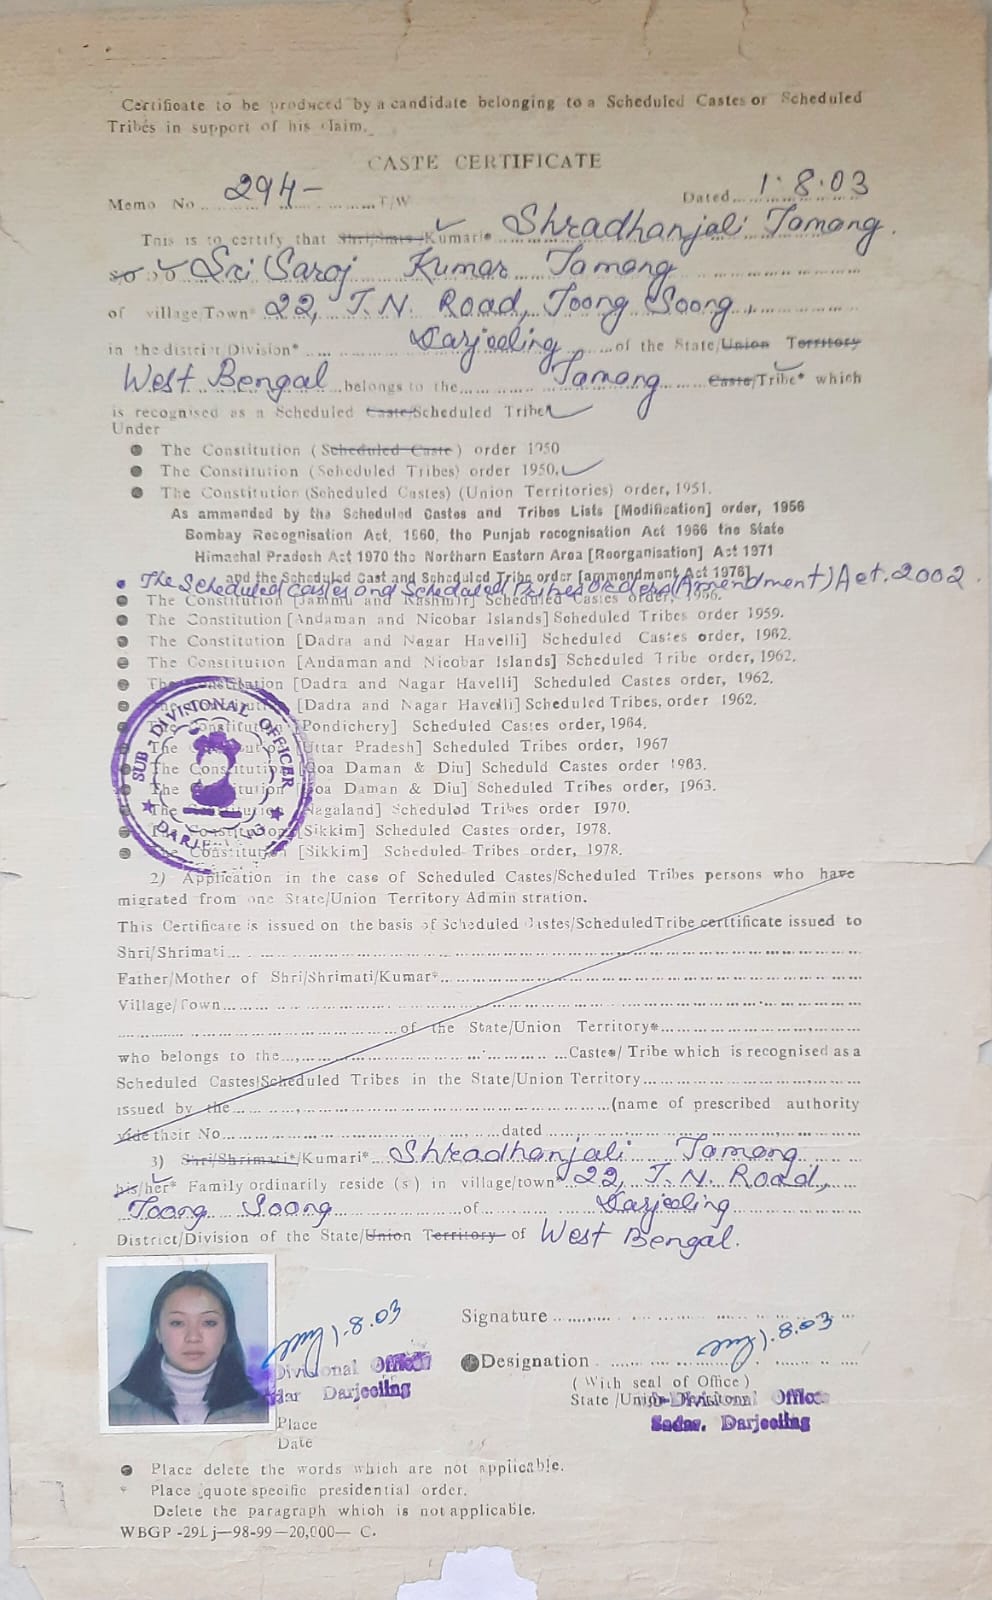 Certificate to be produced by a candidate belonging to a Scheduled Castes or Scheduled
Tribes in support of his claim.
CASTE CERTIFICATE
Memo No 294- T/W Dated 1.8.03
This is to certify that Shri/Smt/Kumari* Shradhanjali Tamang.
Sri Saroj Kumar Tamang
of village/Town* 22, T.N. Road, Toong Soong,
in the district Division* Darjeeling of the State/Union Territory
West Bengal belongs to the Tamang Caste/Tribe* which
is recognised as a Scheduled Caste/Scheduled Tribe
Under
The Constitution (Scheduled Caste) order 1950
The Constitution (Scheduled Tribes) order 1950.
The Constitution (Scheduled Castes) (Union Territories) order, 1951.
As ammended by the Scheduled Castes and Tribes Lists [Modification] order, 1956
Bombay Recognisation Act, 1960, the Punjab recognisation Act 1966 the State
Himachal Pradesh Act 1970 the Northern Eastern Area [Reorganisation] Act 1971
and the Scheduled Cast and Scheduled Tribe order [ammendment Act 1976]
The Scheduled Castes and Scheduled Tribes Orders (Amendment) Act. 2002.
The Constitution [Jammu and Kashmir] Scheduled Castes order, 1956.
The Constitution [Andaman and Nicobar Islands] Scheduled Tribes order 1959.
The Constitution [Dadra and Nagar Havelli] Scheduled Castes order, 1962.
The Constitution [Andaman and Nicobar Islands] Scheduled Tribe order, 1962.
The Constitution [Dadra and Nagar Havelli] Scheduled Castes order, 1962.
The Constitution [Dadra and Nagar Havelli] Scheduled Tribes, order 1962.
The Constitution [Pondichery] Scheduled Castes order, 1964.
The Constitution [Uttar Pradesh] Scheduled Tribes order, 1967
The Constitution [Goa Daman & Diu] Scheduld Castes order 1963.
The Constitution [Goa Daman & Diu] Scheduled Tribes order, 1963.
The Constitution [Nagaland] Scheduled Tribes order 1970.
The Constitution [Sikkim] Scheduled Castes order, 1978.
The Constitution [Sikkim] Scheduled Tribes order, 1978.
SUB-DIVISIONAL OFFICER
DARJEELING
2) Application in the case of Scheduled Castes/Scheduled Tribes persons who have
migrated from one State/Union Territory Admin stration.
This Certificate is issued on the basis of Scheduled Castes/Scheduled Tribe certtificate issued to
Shri/Shrimati
Father/Mother of Shri/Shrimati/Kumar*
Village/Town
of the State/Union Territory*
who belongs to the Caste*/ Tribe which is recognised as a
Scheduled Castes/Scheduled Tribes in the State/Union Territory
issued by the (name of prescribed authority
vide their No dated
3) Shri/Shrimati*/Kumari* Shradhanjali Tamang
his/her* Family ordinarily reside (s) in village/town* 22, T.N. Road,
Toong Soong of Darjeeling
District/Division of the State/Union Territory of West Bengal.
1.8.03
Signature
1.8.03
Divisional Officer
Sadar Darjeeling
Designation
(With seal of Office)
State /Union
Sub-Divisional Officer
Sadar. Darjeeling
Place
Date
Place delete the words which are not applicable.
* Place quote specific presidential order.
Delete the paragraph which is not applicable.
WBGP-29Lj—98-99—20,000— C.